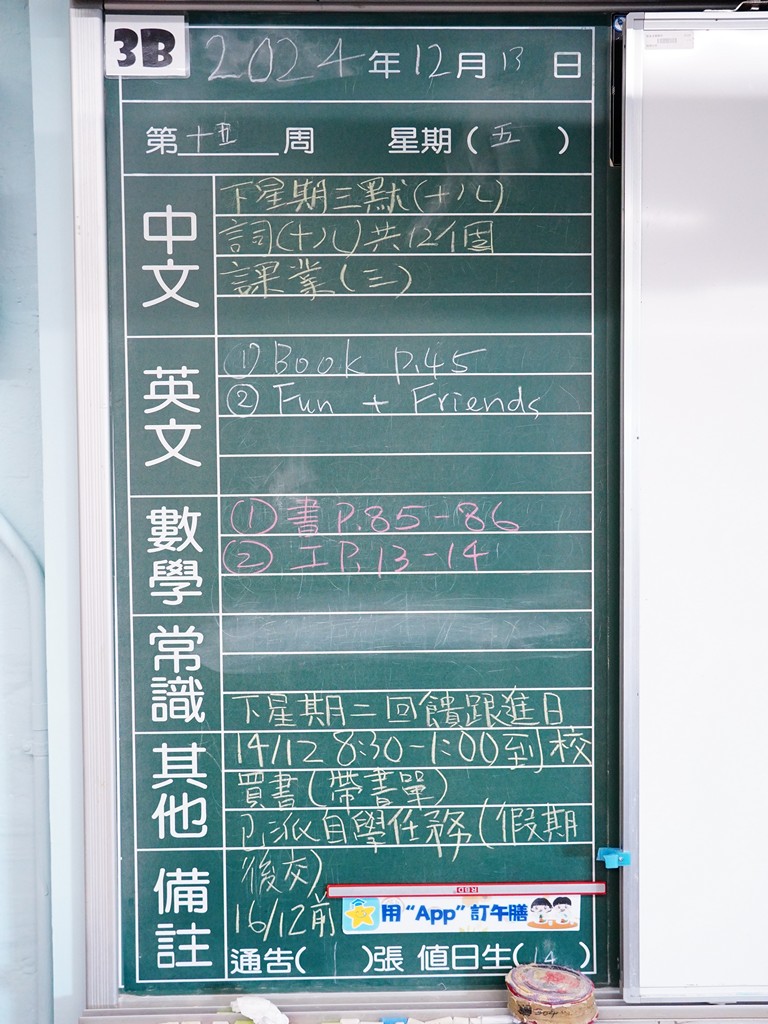 3B
2024年12月13日
第十五周 星期(五)
中文
下星期三默(十八)
詞(十八)共12個
課業(三)
英文
① Book P.45
② Fun + Friends
數學
① 書 P.85-86
② 工 P.13-14
常識
下星期二回饋跟進日
其他
14/12 8:30-1:00到校
買書(帶書單)
已派自學任務(假期
備註
後交)
16/12前
用“App”訂午膳
通告( )張 值日生(14)